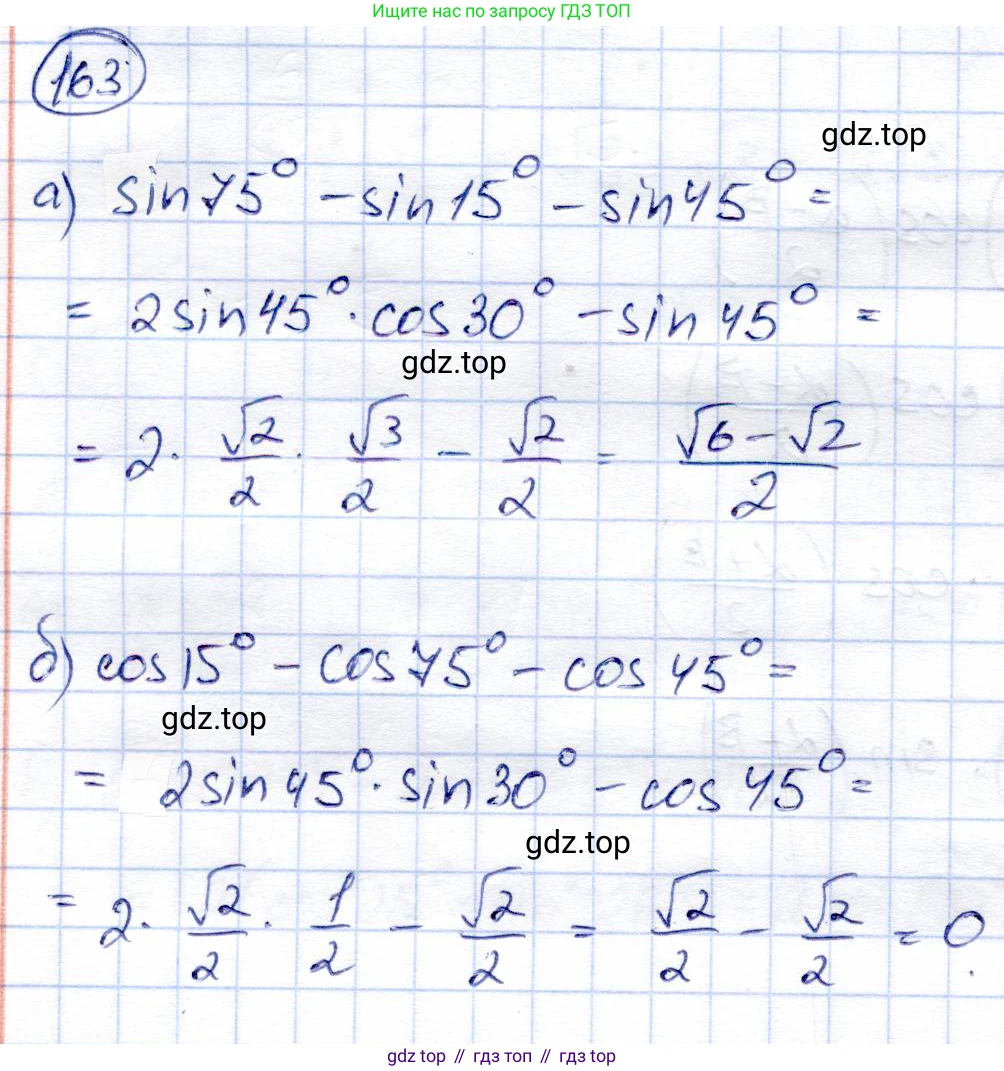 Ищите нас по запросу ГДЗ ТОП
163
gdz.top
а) sin75° - sin15° - sin45° =
= 2sin45° · cos30° - sin45° =
gdz.top
= 2 · √2/2 · √3/2 - √2/2 = (√6 - √2)/2
б) cos15° - cos75° - cos45° =
gdz.top
= 2sin45° · sin30° - cos45° =
gdz.top
= 2 · √2/2 · 1/2 - √2/2 = √2/2 - √2/2 = 0.
gdz top // гдз топ // гдз top